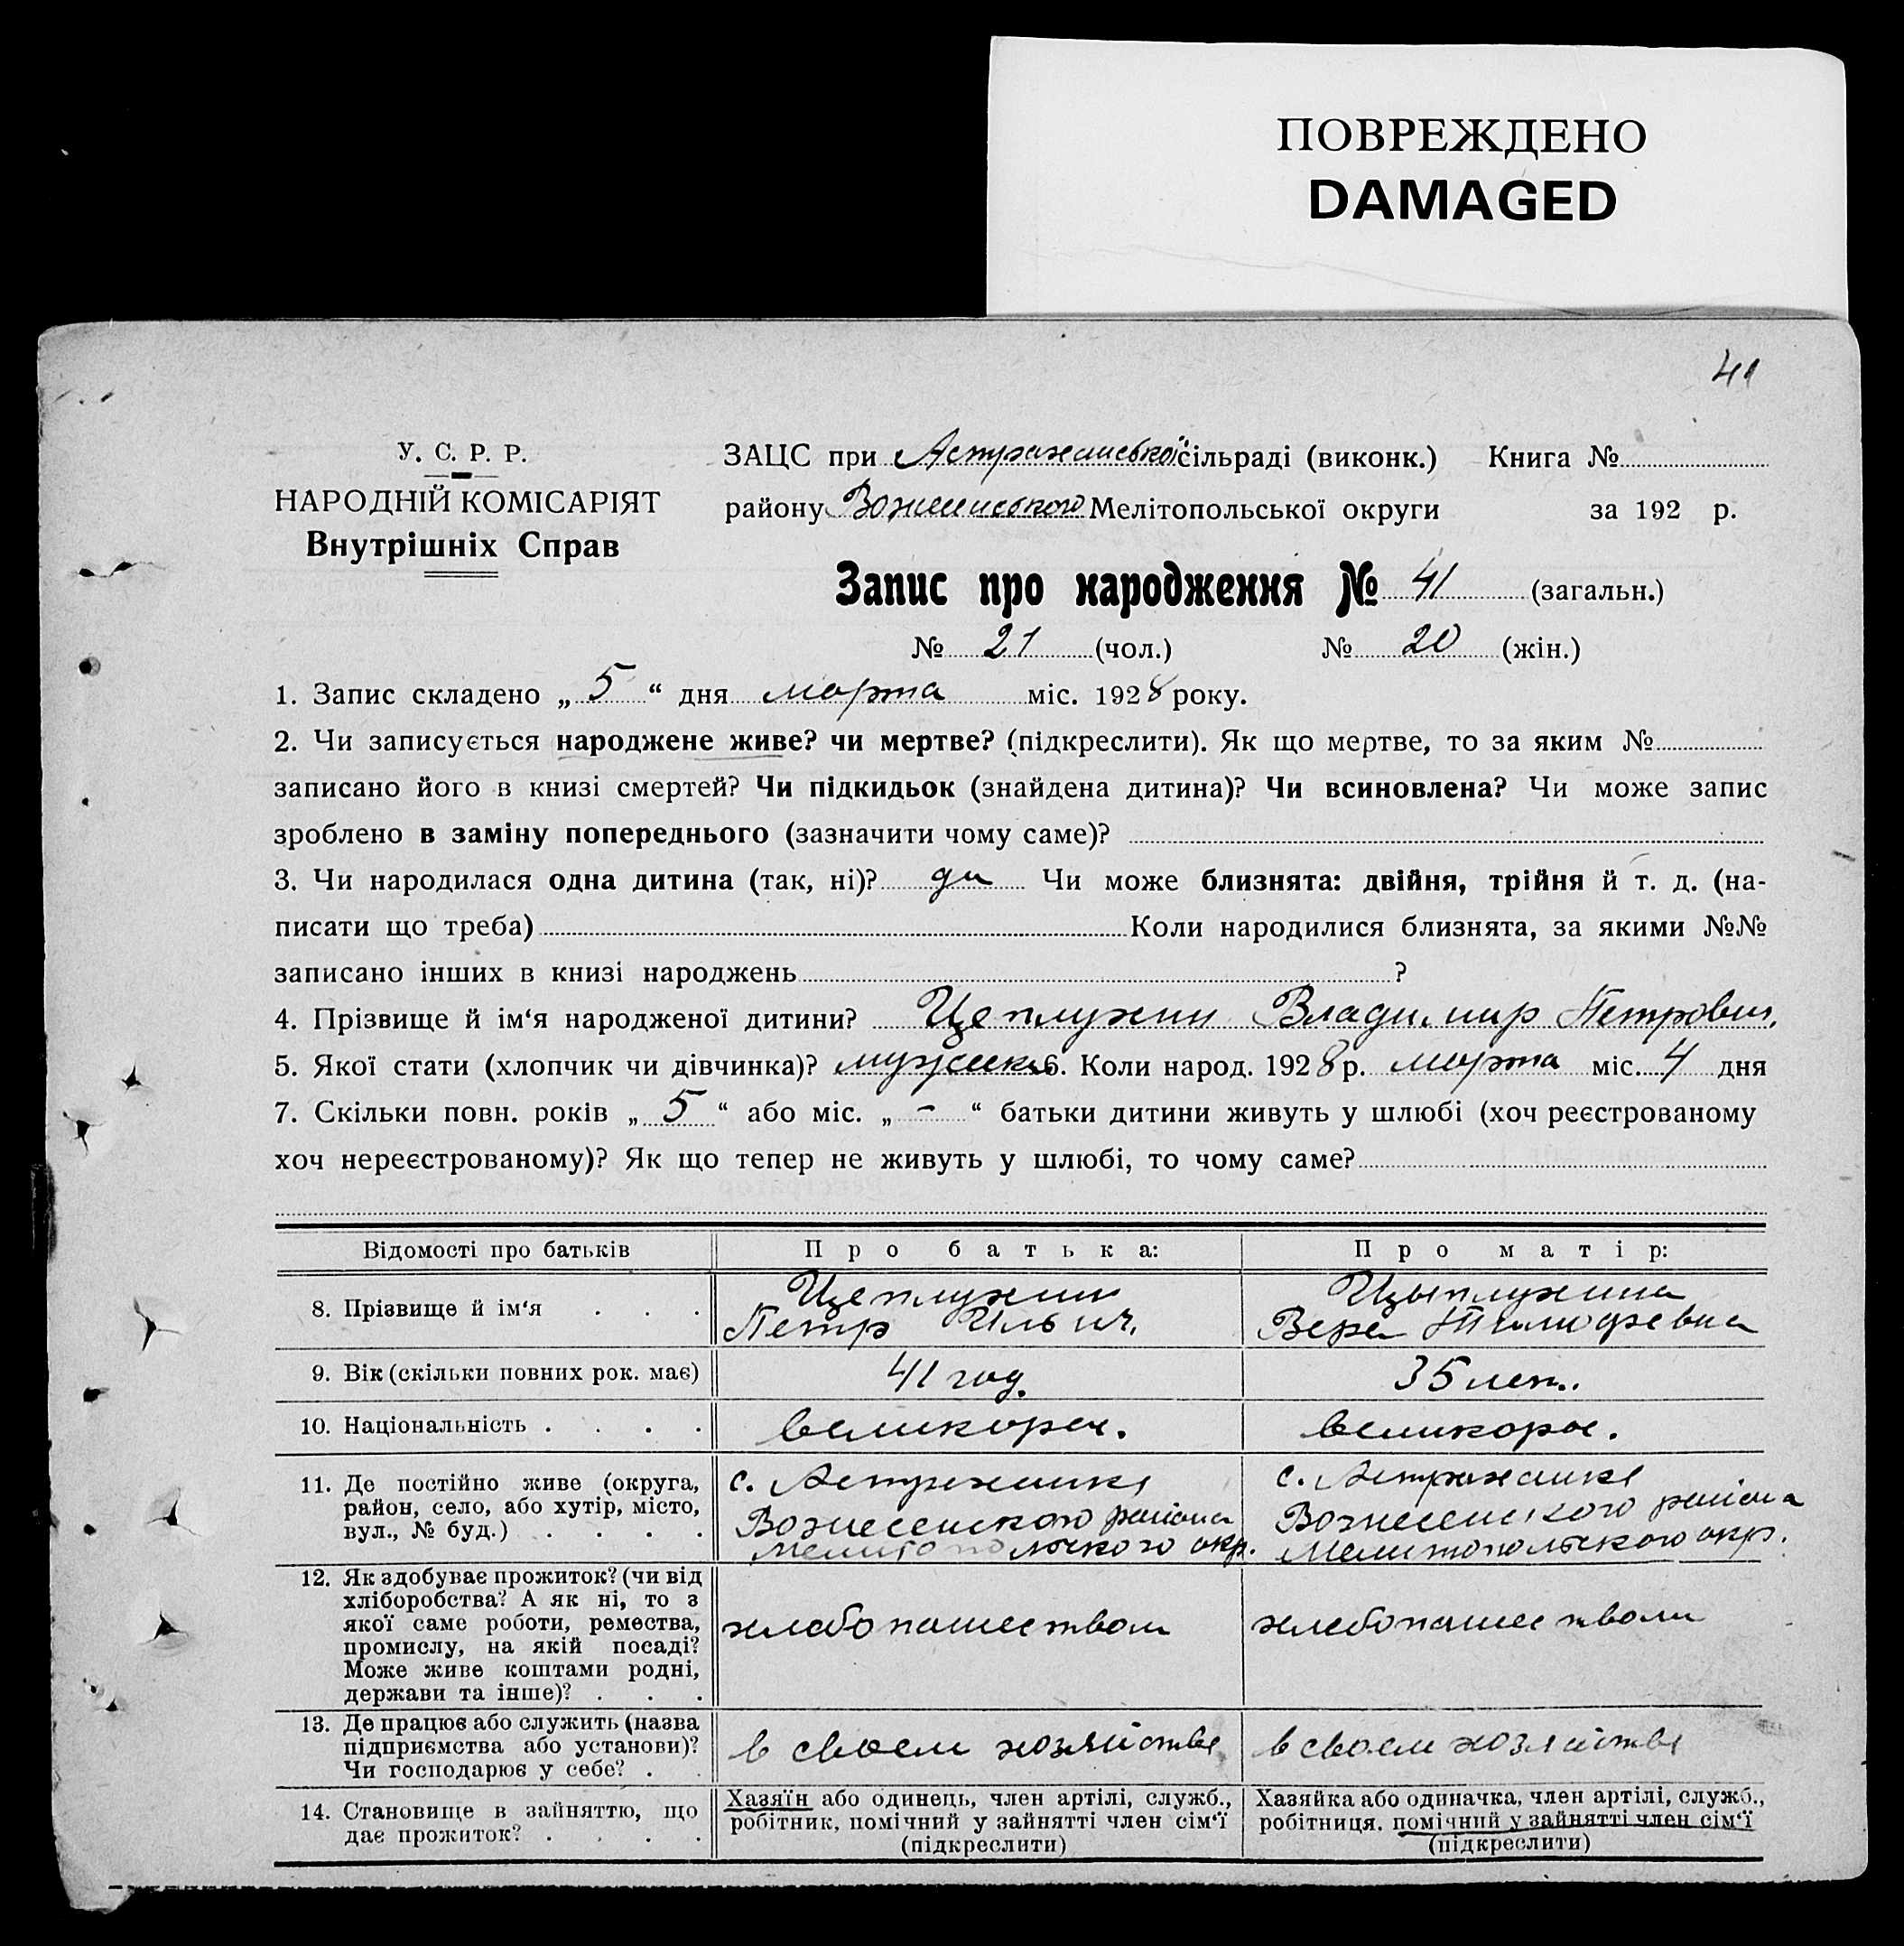 ПОВРЕЖДЕНО
DAMAGED
41
У. С. Р. Р.
НАРОДНІЙ КОМІСАРІЯТ
Внутрішніх Справ
ЗАЦС при Астраханської сільраді (виконк.) Книга №
району Вознесенського Мелітопольської округи за 192 р.
Запис про народження № 41 (загальн.)
№ 21 (чол.) № 20 (жін.)
1. Запис складено „ 5 “ дня марта міс. 1928 року.
2. Чи записується народжене живе? чи мертве? (підкреслити). Як що мертве, то за яким №
записано його в книзі смертей? Чи підкидьок (знайдена дитина)? Чи всиновлена? Чи може запис
зроблено в заміну попереднього (зазначити чому саме)?
3. Чи народилася одна дитина (так, ні)? да Чи може близнята: двійня, трійня й т. д. (на-
писати що треба) Коли народилися близнята, за якими №№
записано інших в книзі народжень ?
4. Прізвище й ім‘я народженої дитини? Цеплухин Владимир Петрович.
5. Якої стати (хлопчик чи дівчинка)? 6. Коли народ. 1928 р. марта міс. 4 дня
7. Скільки повн. років „ 5 “ або міс. „ - “ батьки дитини живуть у шлюбі (хоч реєстрованому
хоч нереєстрованому)? Як що тепер не живуть у шлюбі, то чому саме?
Відомості про батьків Про батька: Про матір:
8. Прізвище й ім‘я . . . Цеплухин Цыплухина
Петр Ильич. Вера
9. Вік (скільки повних рок. має) 41 год. 35 лет.
10. Національність . . . . великорос. великорос.
11. Де постійно живе (округа, с. Астраханка с. Астраханка
район, село, або хутір, місто, Вознесенского района Вознесенского района
вул., № буд.) . . . . Мелитопольского окр. Мелитопольского окр.
12. Як здобуває прожиток? (чи від
хліборобства? А як ні, то з
якої саме роботи, ремества, хлебопашеством хлебопашеством
промислу, на якій посаді?
Може живе коштами родні,
держави та інше)? . . .
13. Де працює або служить (назва
підприємства або установи)? в своем хозяйстве в своем хозяйстве
Чи господарює у себе? . .
14. Становище в зайняттю, що Хазяїн або одинець, член артілі, служб., Хазяйка або одиначка, член артілі, служб.,
дає прожиток? . . . . робітник, помічний у зайнятті член сім‘ї робітниця. помічний у зайнятті член сім‘ї
(підкреслити) (підкреслити)